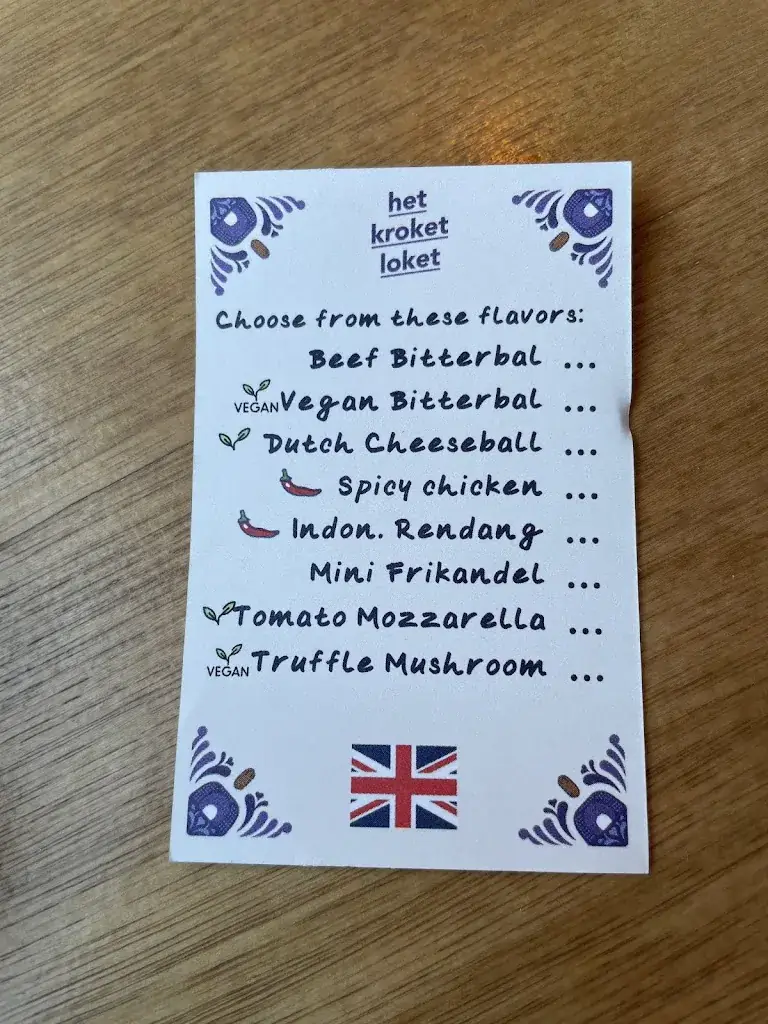 het
kroket
loket
Choose from these flavors:
Beef Bitterbal ...
VEGAN Vegan Bitterbal ...
Dutch Cheeseball ...
Spicy chicken ...
Indon. Rendang ...
Mini Frikandel ...
Tomato Mozzarella ...
VEGAN Truffle Mushroom ...